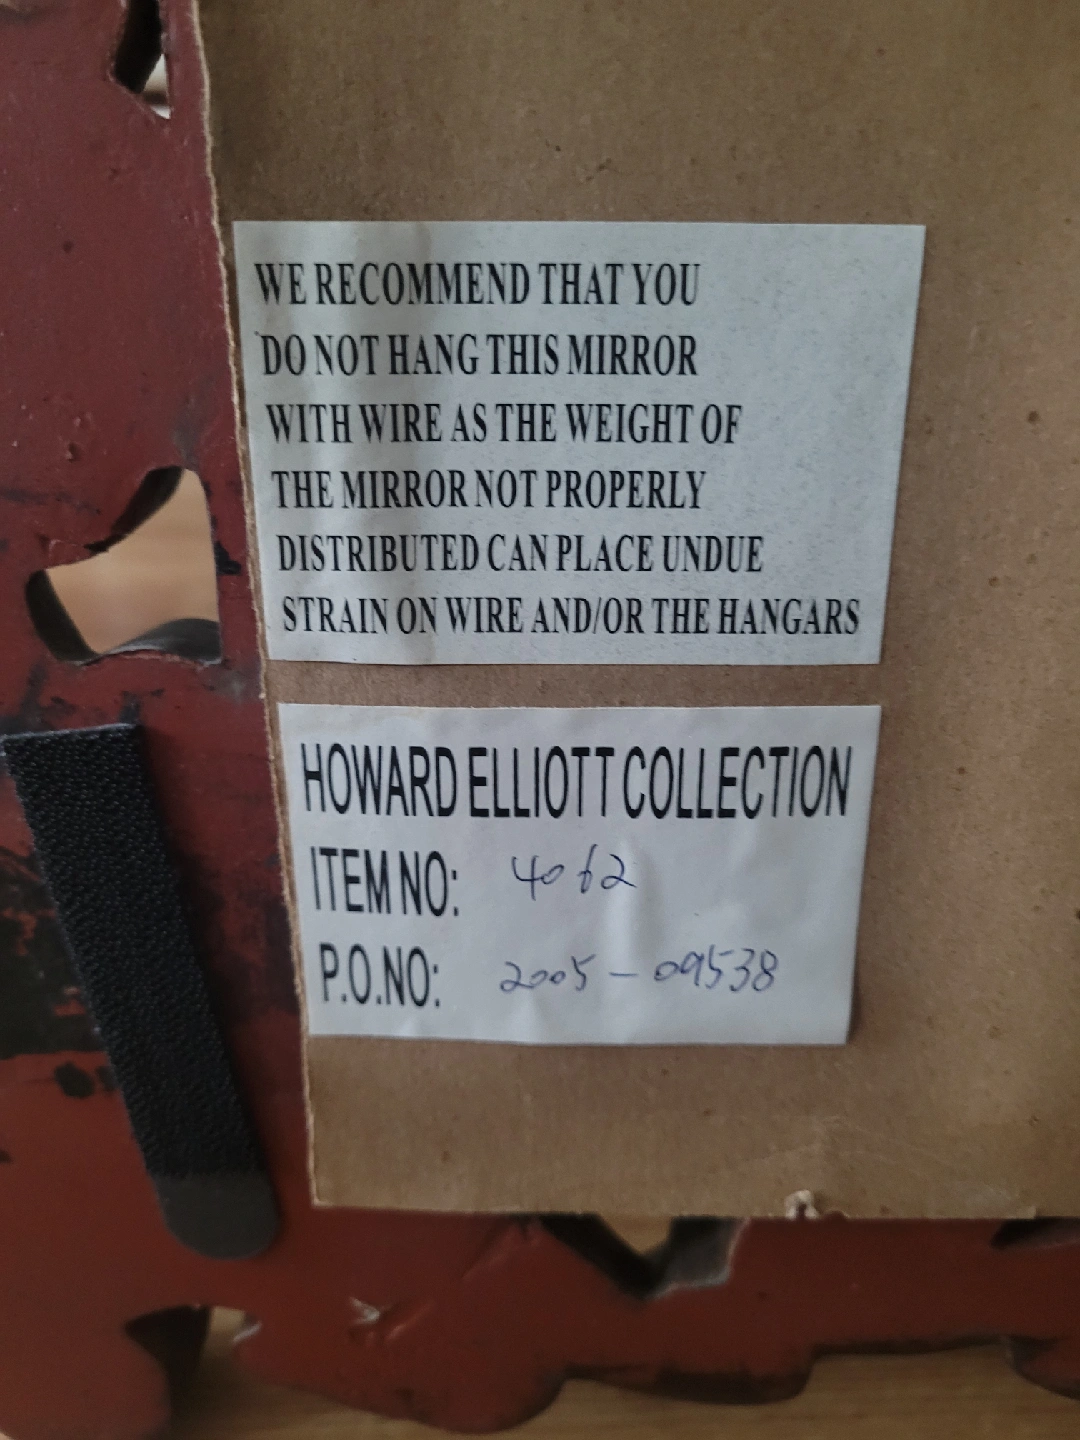 WE RECOMMEND THAT YOU
DO NOT HANG THIS MIRROR
WITH WIRE AS THE WEIGHT OF
THE MIRROR NOT PROPERLY
DISTRIBUTED CAN PLACE UNDUE
STRAIN ON WIRE AND/OR THE HANGARS
HOWARD ELLIOTT COLLECTION
ITEM NO: 4062
P.O.NO: 2005-09538